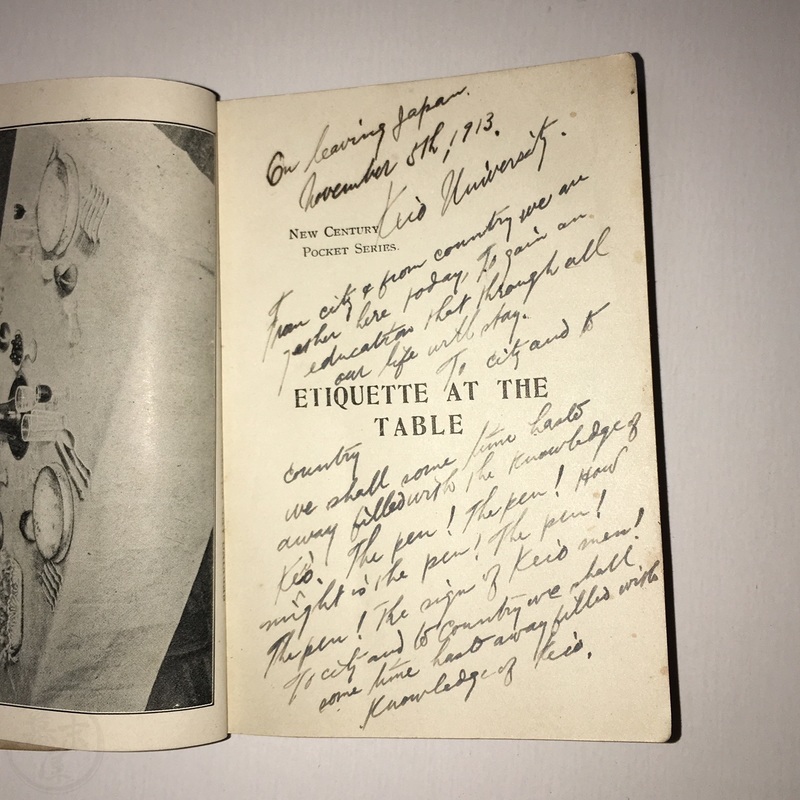 On leaving Japan.
November 5th, 1913.
Keio University.
NEW CENTURY
POCKET SERIES.
From city & from country we are
gether here today, To gain an
education that through all
our life will stay.
To city and to
ETIQUETTE AT THE
TABLE
country
we shall some time haste
away filled with the Knowledge of
Keio. The pen! The pen! How
might is the pen! The pen!
The pen! The sign of Keio men!
To city and to country we shall
some time haste away filled with
Knowledge of Keio.